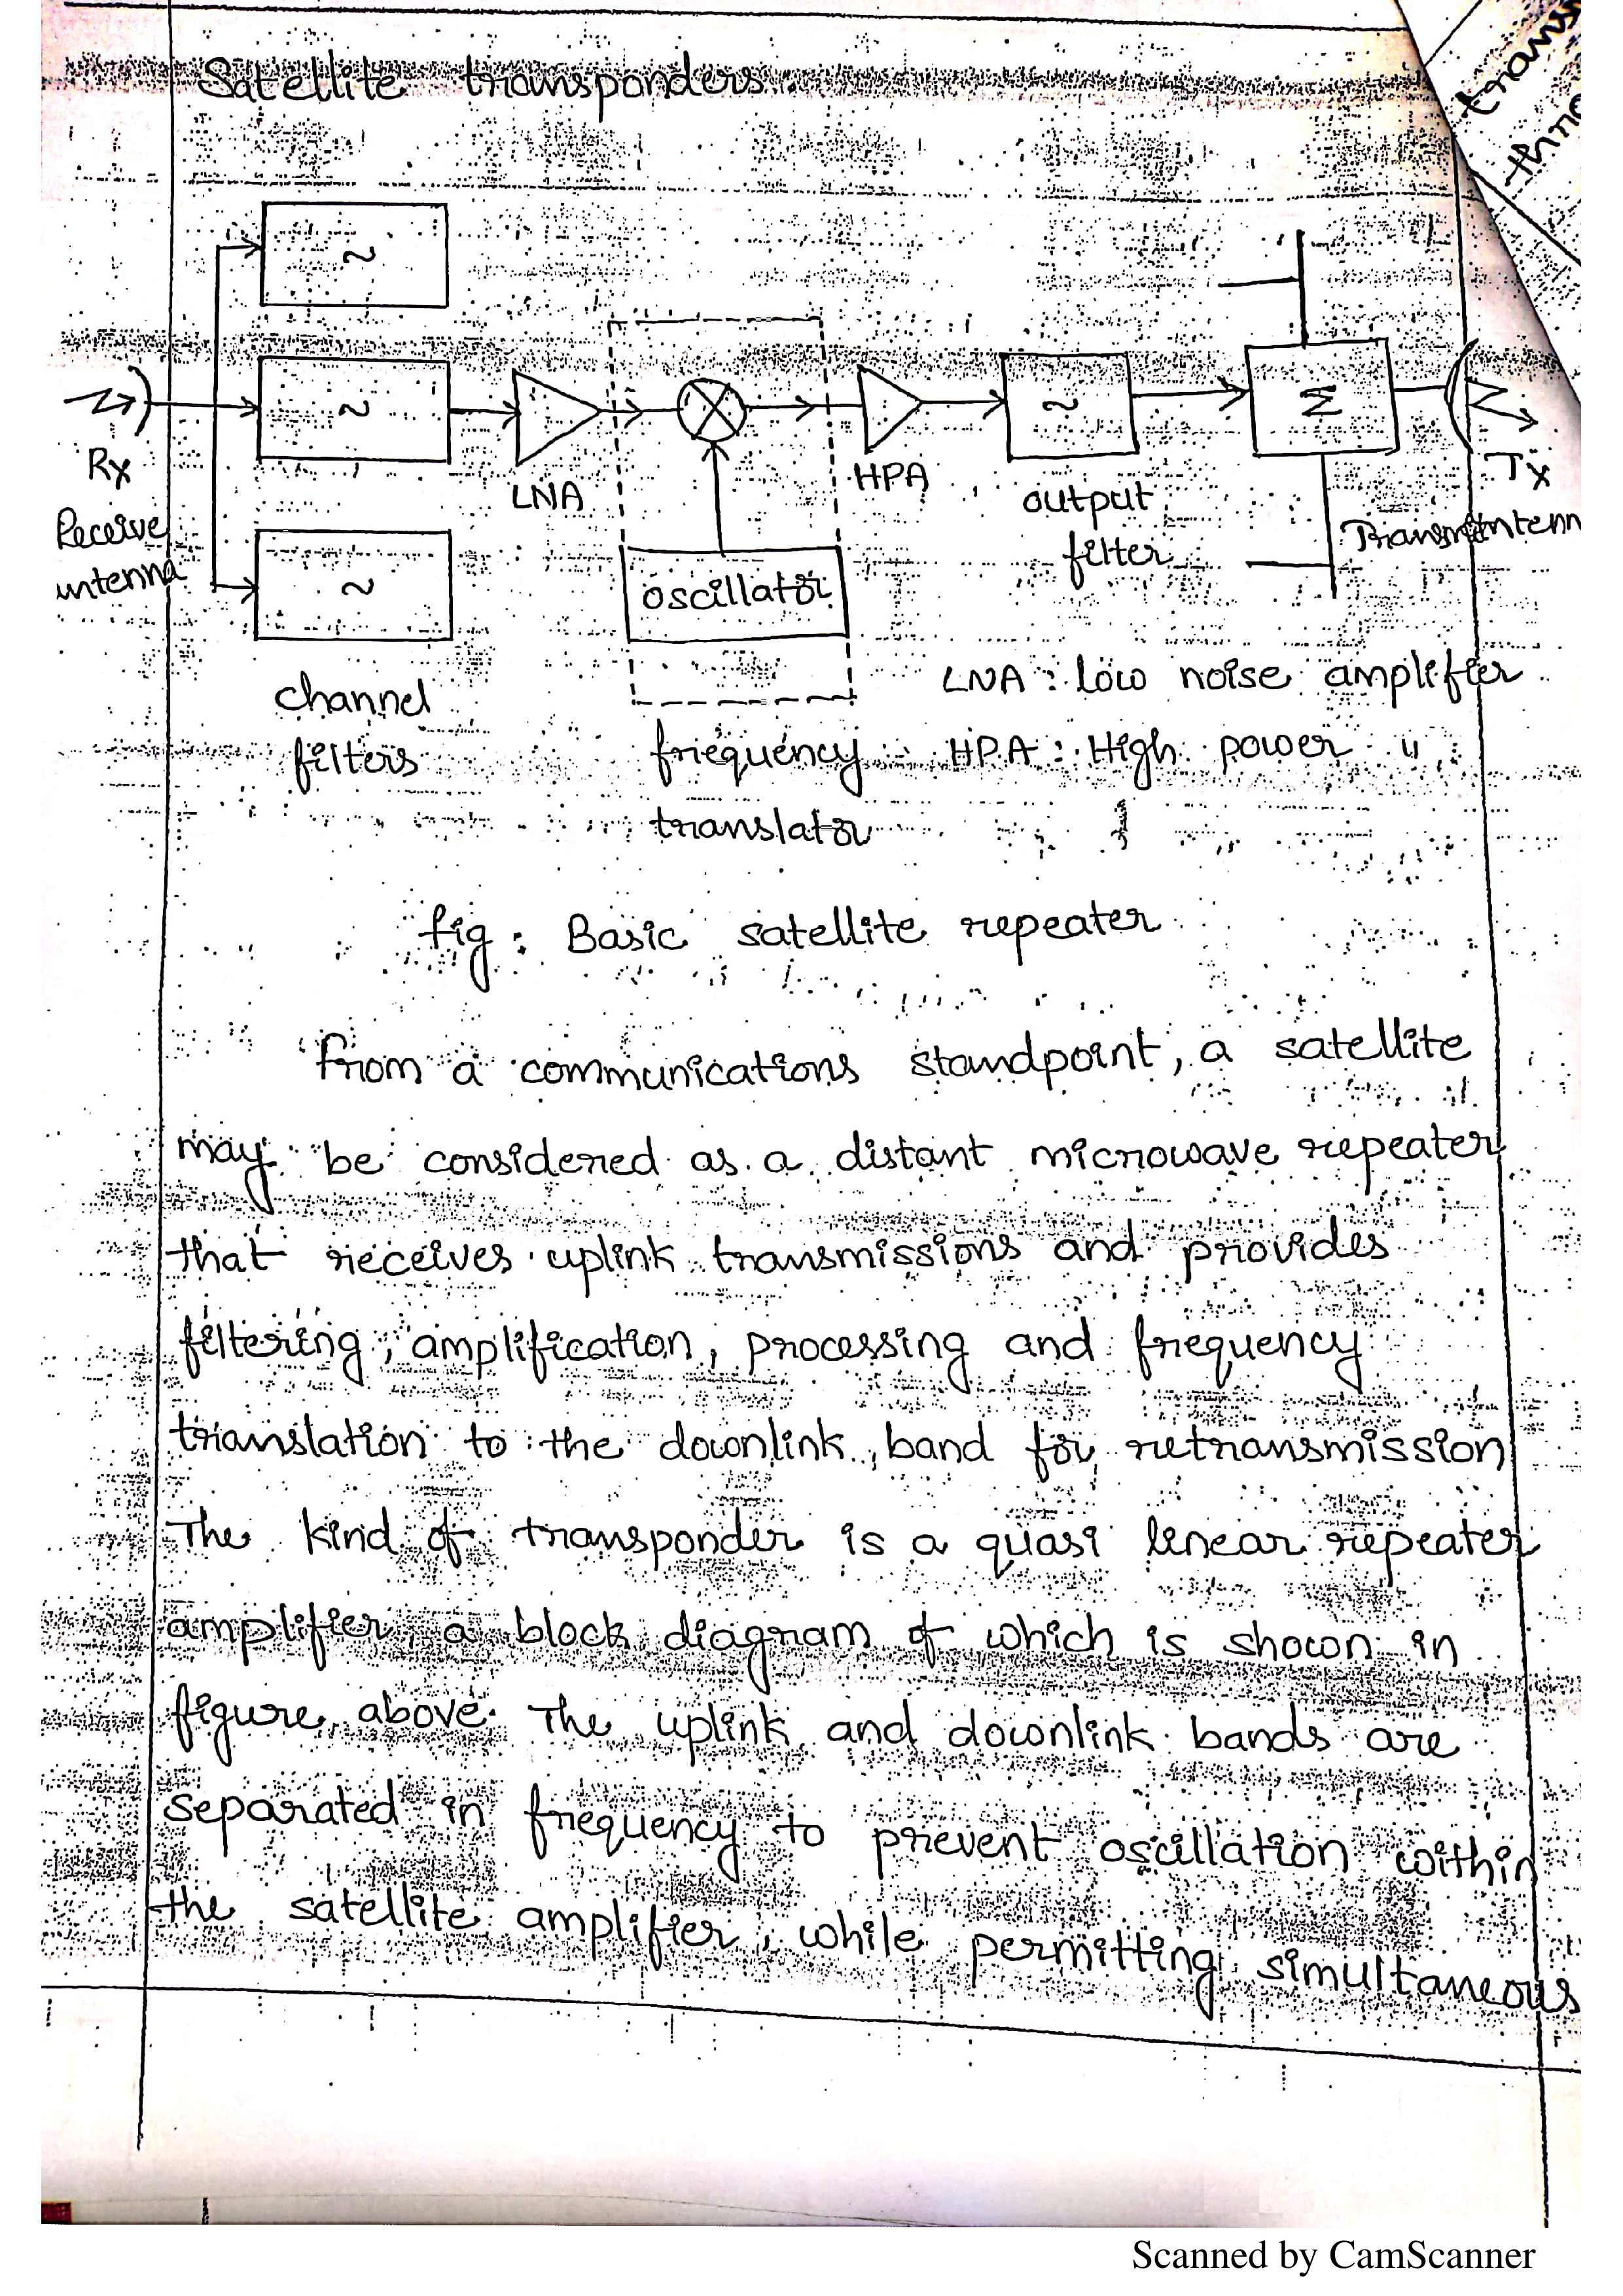 Satellite transponders:
trans
thro
~
~
~
Σ
Rx
LNA
HPA
Tx
Receive
antenna
oscillator
output
filter
Transmit antenn
channel
filters
frequency
translator
LNA : low noise amplifier
HPA : High power "
fig : Basic satellite repeater
From a communications standpoint, a satellite
may be considered as a distant microwave repeater
that receives uplink transmissions and provides
filtering, amplification, processing and frequency
translation to the downlink band for retransmission
The kind of transponder is a quasi linear repeater
amplifier, a block diagram of which is shown in
figure above. The uplink and downlink bands are
separated in frequency to prevent oscillation within
the satellite amplifier, while permitting simultaneous
Scanned by CamScanner